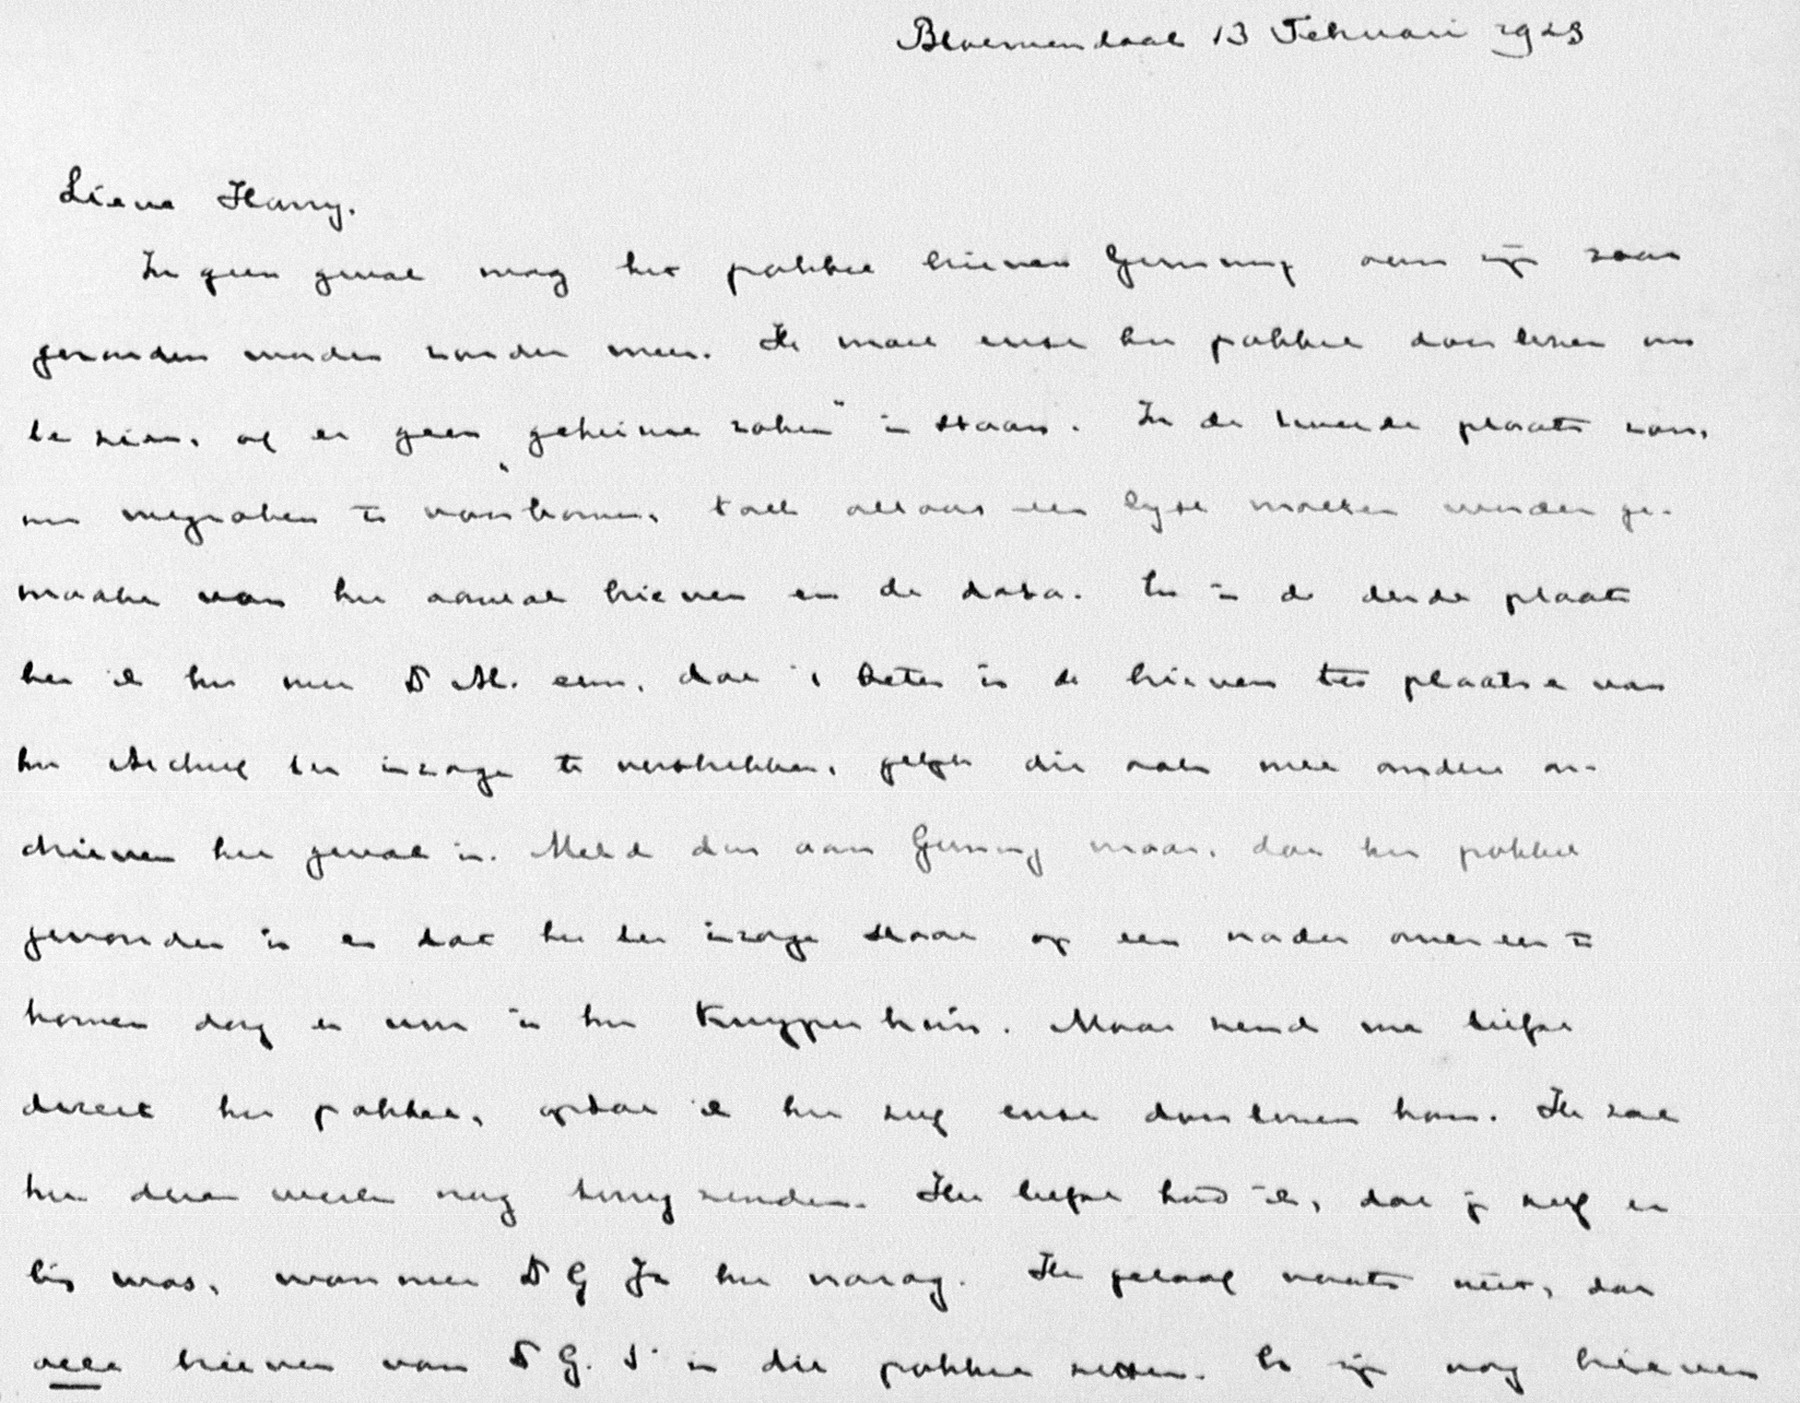 Bloemendaal 13 Februari 1923
Lieve Harry.
In geen geval mag het pakket brieven Gunning aan zijn zoon
gezonden worden zonder meer. Ik moet eerst het pakket doorlezen om
te zien, of er geen "geheime zaken" in staan. In de tweede plaats zou,
om wegraken te voorkomen, toch althans een lijst moeten worden ge-
maakt van het aantal brieven en de data. En in de derde plaats
ben ik het met Dr M. eens, dat 't beter is de brieven ter plaatse van
het Archief ter inzage te verstrekken, gelijk dit ook met andere ar-
chieven het geval is. Meld dus aan Gunning maar, dat het pakket
gevonden is en dat het ter inzage staat op een nader overeen te
komen dag en uur in het Kuyperhuis. Maar zend me liefst
direct het pakket, opdat ik het zelf eerst doorlezen kan. Ik zal
het deze week nog terugzenden. Het liefst had ik, dat jij zelf er
bij was, wanneer Dr G Jr het inzag. Ik geloof niet, dat
alle brieven van Dr G. Sr in dit pakket zitten. Er zijn nog brieven